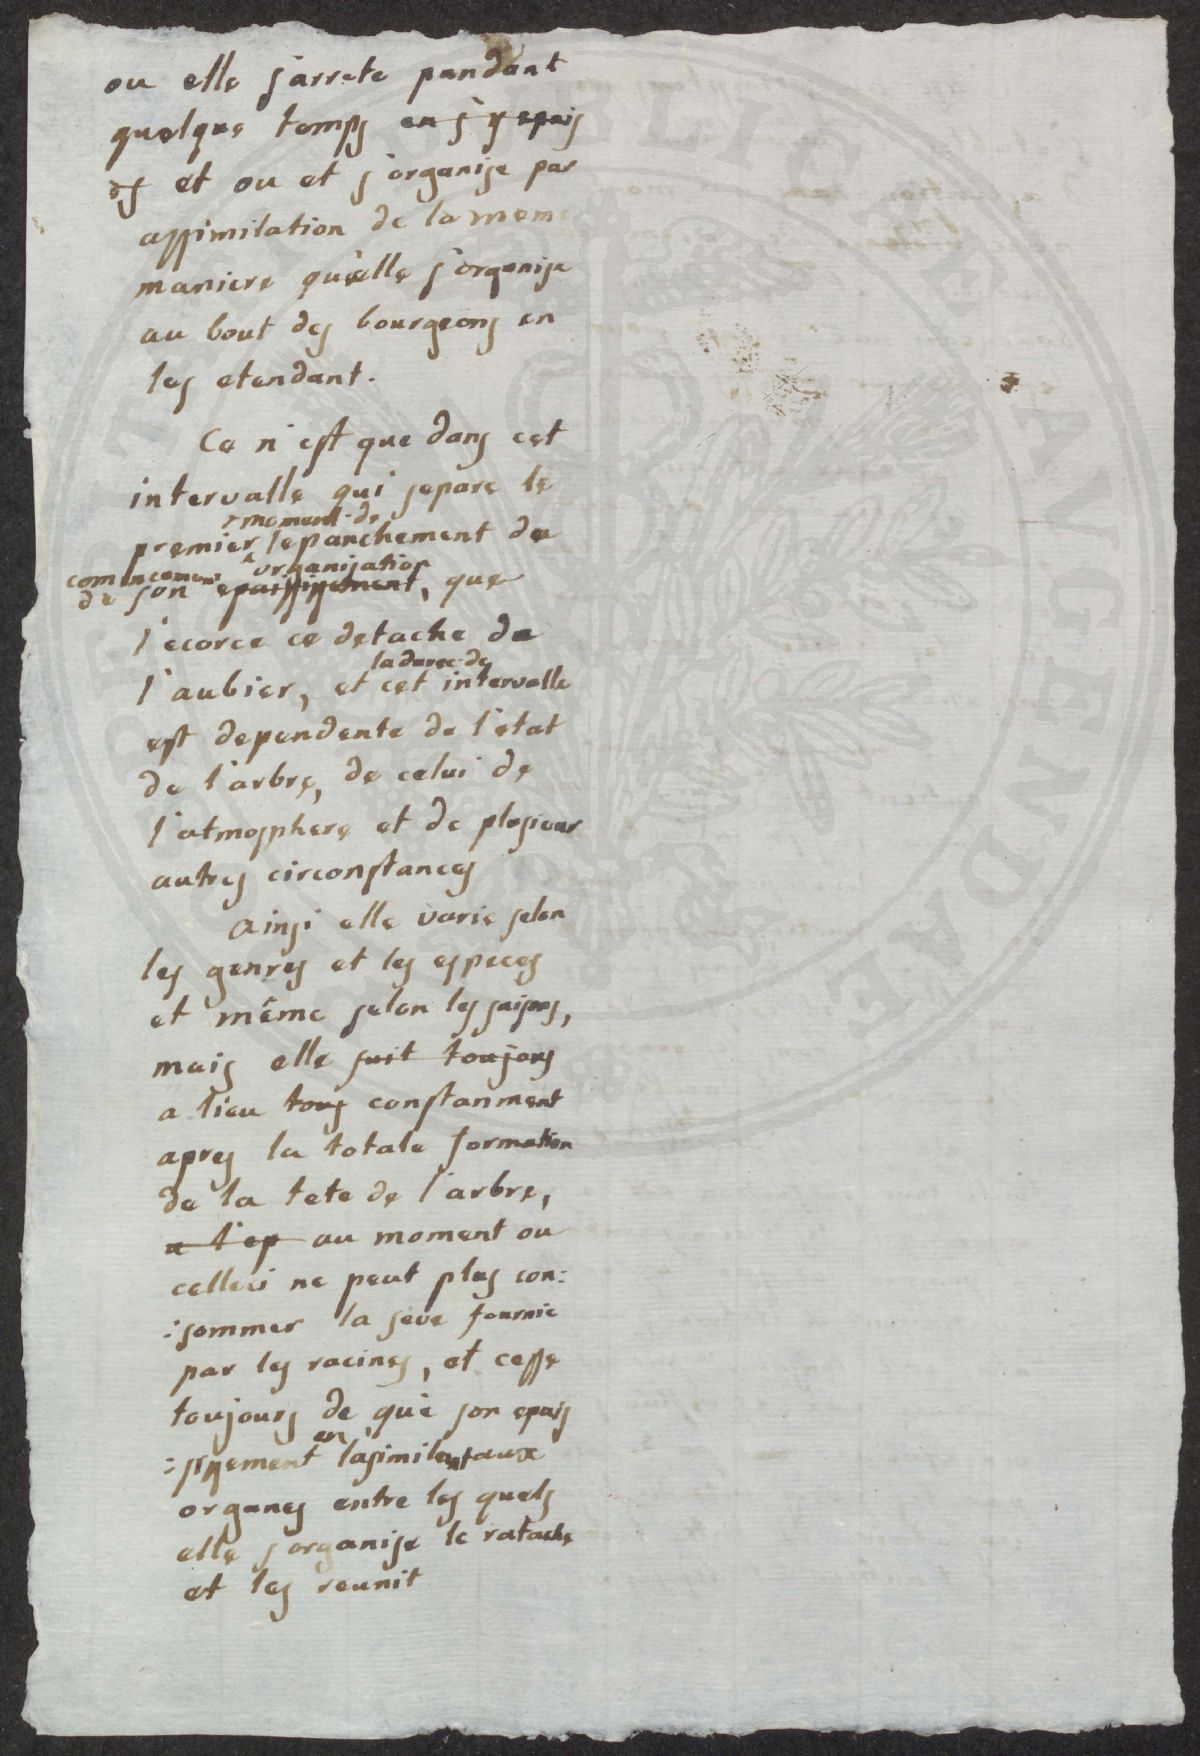 ou elle s'arrete pendant
quelque temps en s'y epais
et ou et s'organise par
assimilation de la meme
maniere qu'elle s'organise
au bout des bourgeons en
les etendant.
Ce n'est que dans cet
intervalle qui separe le
moment de
premier lepanchement de
commencement organisation
de son epaississement, que
l'ecorce ce detache de
la duree de
l'aubier, et cet intervalle
est dependente de l'etat
de l'arbre, de celui de
l'atmosphere et de plusieur
autres circonstances
ainsi elle varie selon
les genres et les especes
et même selon les saisons,
mais elle suit toujours
a lieu tous constanment
apres la totale formation
de la tete de l'arbre,
a l'ep au moment ou
celleci ne peut plus con:
:sommer la seve fournie
par les racines, et cesse
toujours de que son epais
en
:sissement lasimilant aux
organes entre les quels
elle s'organise le ratache
et les reunit
BIBLIO